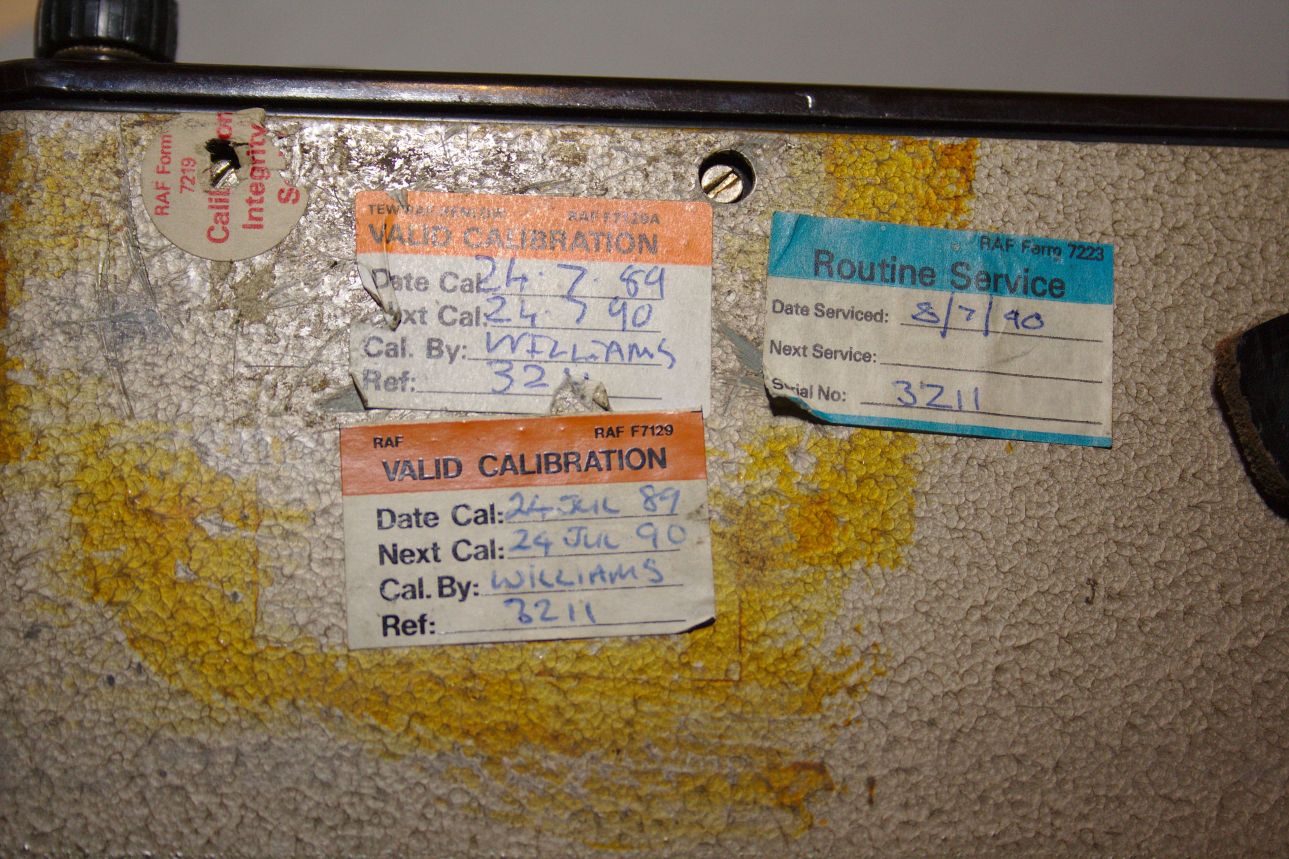 RAF Form
7219
Integrity
TEW RAF HENLOW RAF F7129A
VALID CALIBRATION
Date Cal: 24.7.89
Next Cal: 24.7 90
Cal. By: WILLIAMS
Ref: 3211
RAF RAF F7129
VALID CALIBRATION
Date Cal: 24 JUL 89
Next Cal: 24 JUL 90
Cal. By: WILLIAMS
Ref: 3211
RAF Form 7223
Routine Service
Date Serviced: 8/7/90
Next Service:
Serial No: 3211